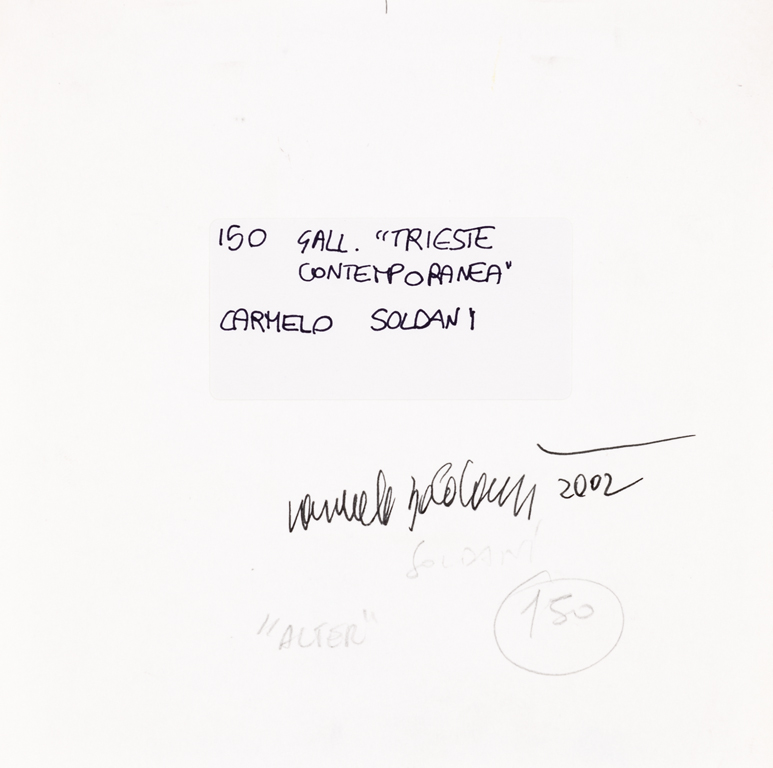 150 GALL. "TRIESTE
CONTEMPORANEA"
CARMELO SOLDANI
Carmelo Soldani 2002
SOLDANI
"ALTER"
150